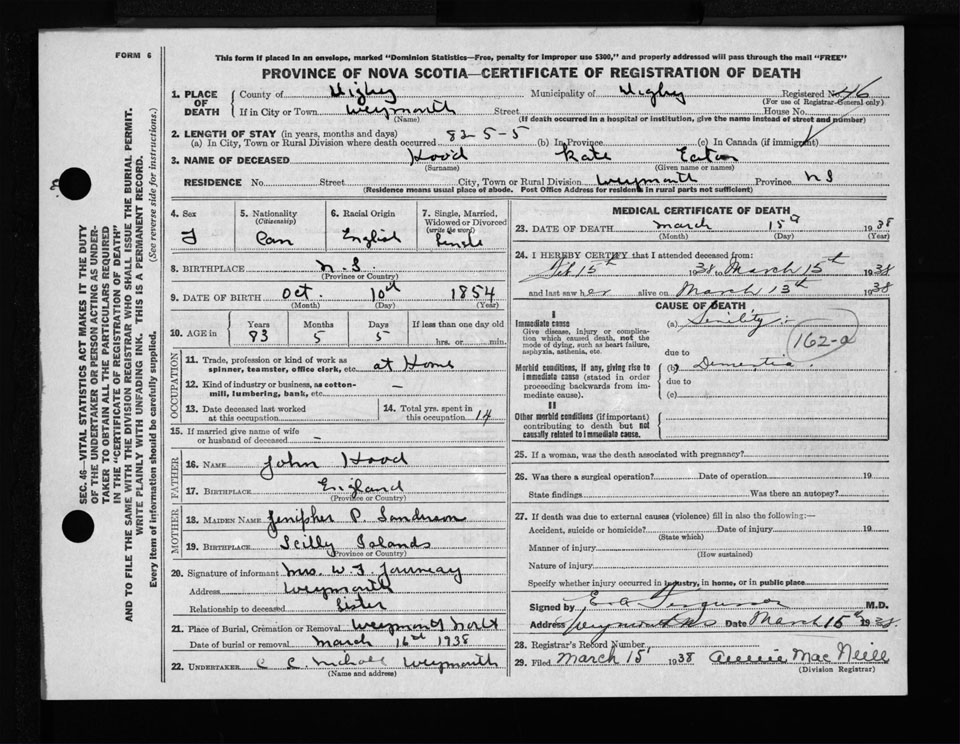 FORM 6
This form if placed in an envelope, marked "Dominion Statistics—Free, penalty for improper use $300," and properly addressed will pass through the mail "FREE"
PROVINCE OF NOVA SCOTIA—CERTIFICATE OF REGISTRATION OF DEATH
1. PLACE OF DEATH
County of Digby Municipality of Digby Registered No. 46
(For use of Registrar-General only)
If in City or Town Weymouth Street House No.
(Name) (If death occurred in a hospital or institution, give the name instead of street and number)
2. LENGTH OF STAY (in years, months and days)
(a) In City, Town or Rural Division where death occurred 82-5-5 (b) In Province (c) In Canada (if immigrant)
3. NAME OF DECEASED Hood Kate Eaton
(Surname) (Given name or names)
RESIDENCE No. Street City, Town or Rural Division Weymouth Province N S
(Residence means usual place of abode. Post Office Address for residents in rural parts not sufficient)
4. Sex
F
5. Nationality
(Citizenship)
Can
6. Racial Origin
English
7. Single, Married, Widowed or Divorced
(write the word)
Single
8. BIRTHPLACE N.S.
(Province or Country)
9. DATE OF BIRTH Oct. 10th 1854
(Month) (Day) (Year)
10. AGE in
Years Months Days If less than one day old
83 5 5 hrs. or min.
OCCUPATION
11. Trade, profession or kind of work as spinner, teamster, office clerk, etc. at Home
12. Kind of industry or business, as cotton-mill, lumbering, bank, etc. —
13. Date deceased last worked at this occupation
14. Total yrs. spent in this occupation 14
15. If married give name of wife or husband of deceased –
FATHER
16. NAME John Hood
17. BIRTHPLACE England
(Province or Country)
MOTHER
18. MAIDEN NAME Jenipher P. Sanderson
19. BIRTHPLACE Scilly Islands
(Province or Country)
20. Signature of informant Mrs. W. F.
Address Weymouth
Relationship to deceased Sister
21. Place of Burial, Cremation or Removal Weymouth North
Date of burial or removal March 1938
22. UNDERTAKER Weymouth
(Name and address)
MEDICAL CERTIFICATE OF DEATH
23. DATE OF DEATH March 15 1938
(Month) (Day) (Year)
24. I HEREBY CERTIFY that I attended deceased from:
Feb 15th 1938 to March 15th 1938
and last saw her alive on March 13th 1938
CAUSE OF DEATH
I
Immediate cause
Give disease, injury or complication which caused death, not the mode of dying, such as heart failure, asphyxia, asthenia, etc.
(a) Senility
162-a
due to
Morbid conditions, if any, giving rise to immediate cause (stated in order proceeding backwards from immediate cause).
(b) Dementia.
due to
(c)
II
Other morbid conditions (if important) contributing to death but not causally related to immediate cause.
25. If a woman, was the death associated with pregnancy?
26. Was there a surgical operation? Date of operation 19
State findings Was there an autopsy?
27. If death was due to external causes (violence) fill in also the following:—
Accident, suicide or homicide? Date of injury 19
(State which)
Manner of injury
(How sustained)
Nature of injury
Specify whether injury occurred in industry, in home, or in public place
Signed by Ferguson M.D.
Address Weymouth N S Date March 15th 1938
28. Registrar's Record Number
29. Filed March 15, 1938 Annie MacNeill
(Division Registrar)
SEC. 46—VITAL STATISTICS ACT MAKES IT THE DUTY
OF THE UNDERTAKER OR PERSON ACTING AS UNDER-
TAKER TO OBTAIN ALL THE PARTICULARS REQUIRED
IN THE "CERTIFICATE OF REGISTRATION OF DEATH"
AND TO FILE THE SAME WITH THE DIVISION REGISTRAR WHO SHALL ISSUE THE BURIAL PERMIT.
WRITE PLAINLY WITH UNFADING INK. THIS IS A PERMANENT RECORD.
Every item of information should be carefully supplied. (See reverse side for instructions.)